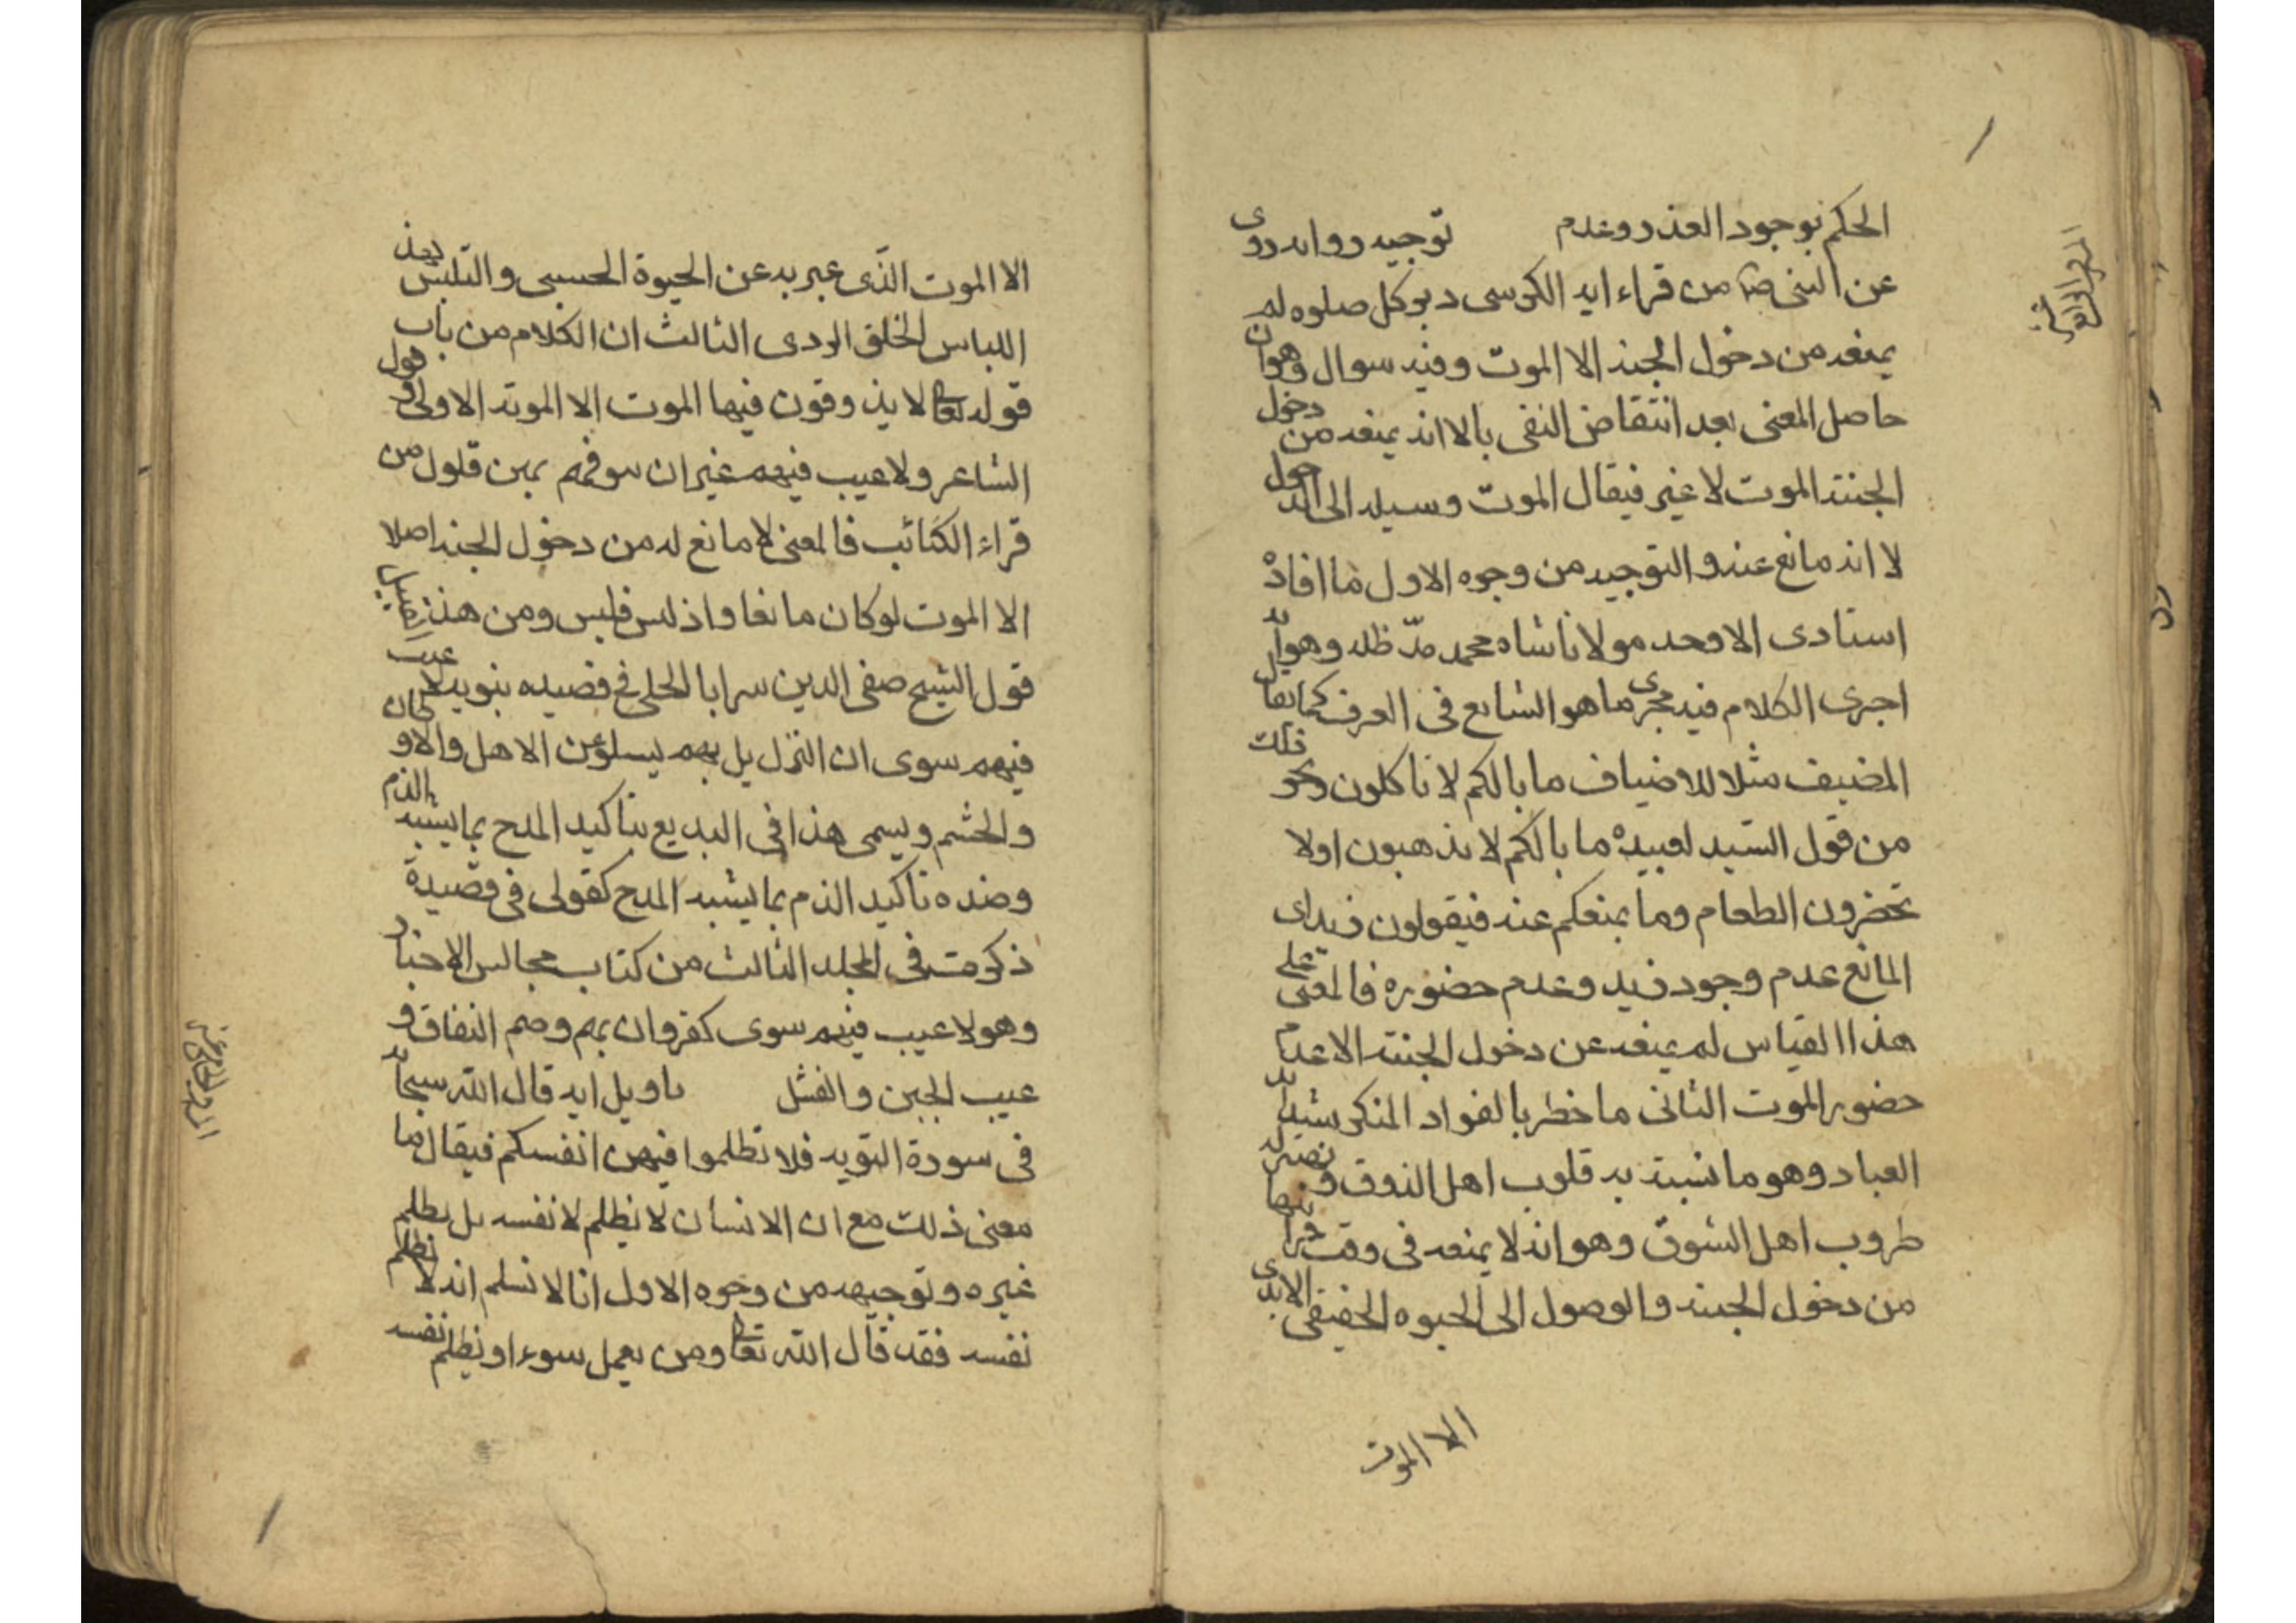 الحكم بوجود العذر وعدم توجيه روايه روى
عن النبى ص من قراء ايه الكرسى دبر كل صلوه لم
يمنعه من دخول الجنه الا الموت وفيه سوال وهو ان
حاصل المعنى بعد انتقاض النفى بالا انه يمنعه من دخول
الجنته الموت لا غير فيقال الموت وسيله الى الدخول
لا انه مانع عنه والتوجيه من وجوه الاول ما افاده
استادى الاوحد مولانا شاه محمد مدّ ظله وهو انه
اجرى الكلام فيه مجرى ما هو الشايع فى العرف كما يقال
المضيف مثلا للاضياف ما بالكم لا تاكلون ونحو ذلك
من قول السيد لعبيده ما بالكم لا تذهبون اولا
تحضرون الطعام وما يمنعكم عنه فيقولون فيه اى
المانع عدم وجود فيه وعدم حضوره فالمعنى على
هذا القياس لم يمنعه عن دخول الجنته الا عدم
حضور الموت الثانى ما خطر بالفواد المنكر شيد انه
العباد وهو ما تنبته به قلوب اهل الذوق و
طروب اهل الشوق وهو انه لا يمنعه فى وقت
من دخول الجنه والوصول الى الحيوه الحقيقى الابدى
الا الموت
الا الموت الّذى عبر به عن الحيوة الحسبى والتلبس بعد
اللباس الخلق الردى الثالث ان الكلام من باب
قوله تعا لا يذوقون فيها الموت الا الموتة الاولى و قول
الشاعر ولا عيب فيهم غير ان سوفهم بهن قلول من
قراء الكتائب فالمعنى لا مانع له من دخول الجنه اصلا
الا الموت لو كان مانعا واذ ليس فليس ومن هذا القبيل
قول الشيخ صفى الدين سرايا الحلى فى قصيده بنويه لا عيب
فيهم سوى ان النزيل بهم يسلو عن الاهل والاوطان
والحشم ويسمى هذا فى البديع بتاكيد المدح بما يشبه الذم
وضده تاكيد الذم بما يشبه المدح كقولى فى قصيدة
ذكرت فى المجلد الثالث من كتاب مجالس الاخبار
وهو لا عيب فيهم سوى كفر وان بهم وصم النفاق و
عيب الجبن والفشل تاويل ايه قال الله سبحانه
فى سورة التوبه فلا تظلموا فيهن انفسكم فيقال ما
معنى ذلك مع ان الانسان لا يظلم لا نفسه بل يظلم
غيره وتوجيهه من وجوه الاول انا لا نسلم انه لا يظلم
نفسه فقد قال الله تعا ومن يعمل سوءا او يظلم نفسه